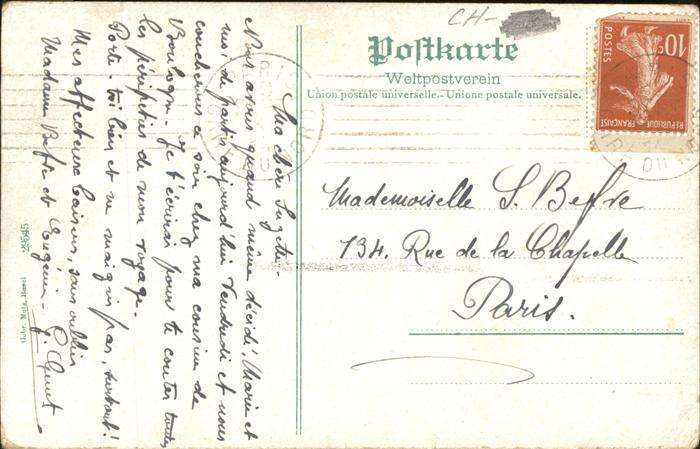 CH-
Postkarte
Weltpostverein
Union postale universelle.-Unione postale universale.
10c
POSTES
REPUBLIQUE FRANÇAISE
Mademoiselle S. Beffre
134. Rue de la Chapelle
Paris.
Ma chère Suzette.
Nous avons quand même décidé, Marie et
moi de partir aujourd'hui Vendredi et nous
coucherons ce soir chez ma cousine de
Boulogne. Je t'écrirai pour te conter toutes
les péripéties de mon voyage.
Porte-toi bien et ne maigris pas, surtout!
Mes affectueux baisers, sans oublier
Madame Beffre et Eugénie.
Gebr. Metz, Basel
23645